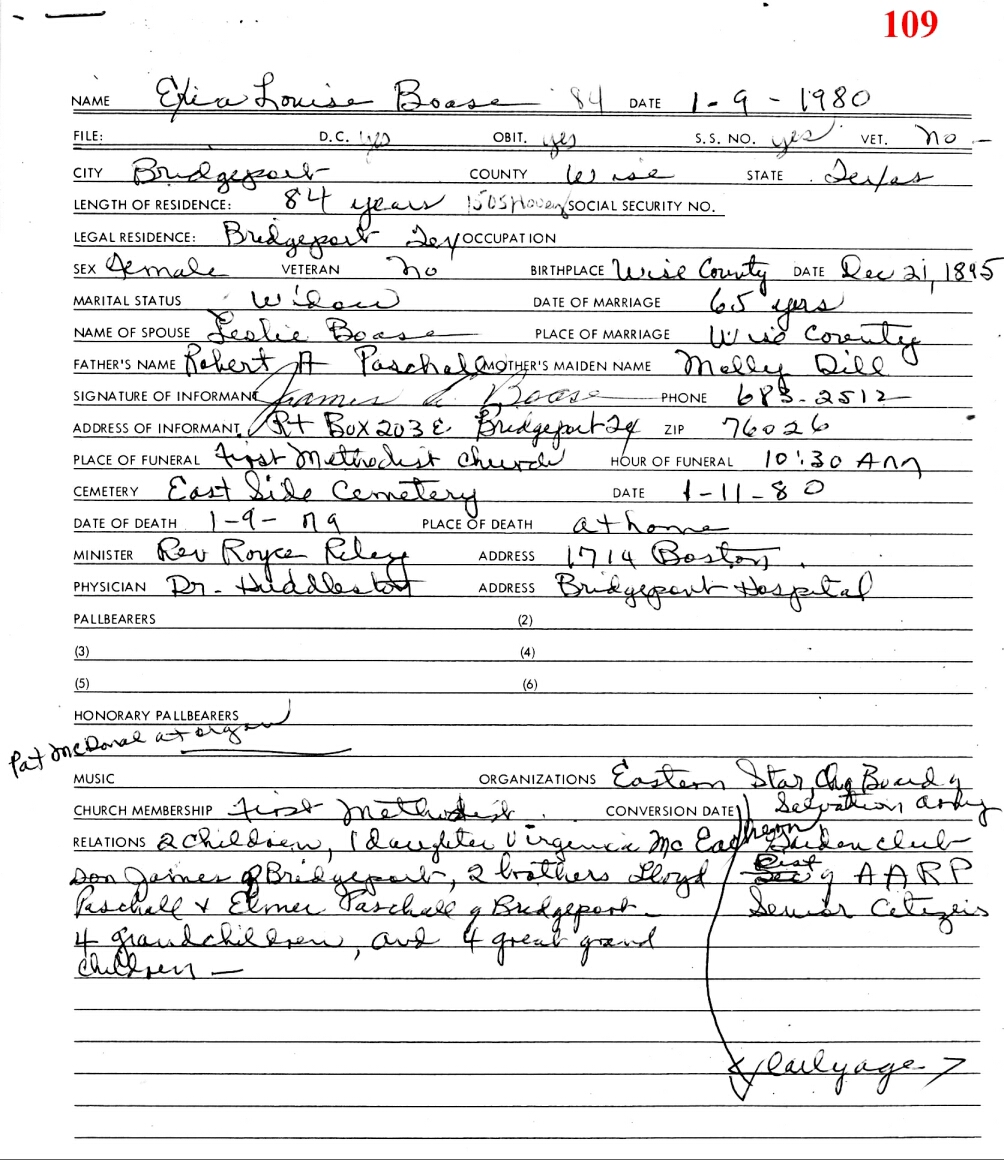 109
NAME Louise Boase 84 DATE 1-9-1980
FILE: D.C. yes OBIT. yes S.S. NO. yes VET. No
CITY Bridgeport COUNTY Wise STATE Texas
LENGTH OF RESIDENCE: 84 years SOCIAL SECURITY NO.
LEGAL RESIDENCE: Bridgeport Tex OCCUPATION
SEX Female VETERAN no BIRTHPLACE Wise County DATE Dec 21, 1895
MARITAL STATUS Widow DATE OF MARRIAGE 65 yrs
NAME OF SPOUSE Leslie Boase PLACE OF MARRIAGE Wise County
FATHER'S NAME Robert A Paschall MOTHER'S MAIDEN NAME Molly Dill
SIGNATURE OF INFORMANT James Boase PHONE 683-2512
ADDRESS OF INFORMANT Rt Box 203E Bridgeport Tx ZIP 76026
PLACE OF FUNERAL First Methodist Church HOUR OF FUNERAL 10:30 AM
CEMETERY East Side Cemetery DATE 1-11-80
DATE OF DEATH 1-9- PLACE OF DEATH at home
MINISTER Rev Royce Riley ADDRESS 1714 Boston
PHYSICIAN Dr. Huddleston ADDRESS Bridgeport Hospital
PALLBEARERS (2)
(3) (4)
(5) (6)
HONORARY PALLBEARERS
Pat McDonal at organ
MUSIC ORGANIZATIONS Eastern Star, Board of
CHURCH MEMBERSHIP First Methodist CONVERSION DATE Salvation Army
RELATIONS 2 children, 1 daughter Virginia Mc Eachern Garden club
Son James of Bridgeport, 2 brothers Lloyd of AARP
Paschall & Elmer Paschall of Bridgeport. Senior Citizens
4 grandchildren, and 4 great grand
children